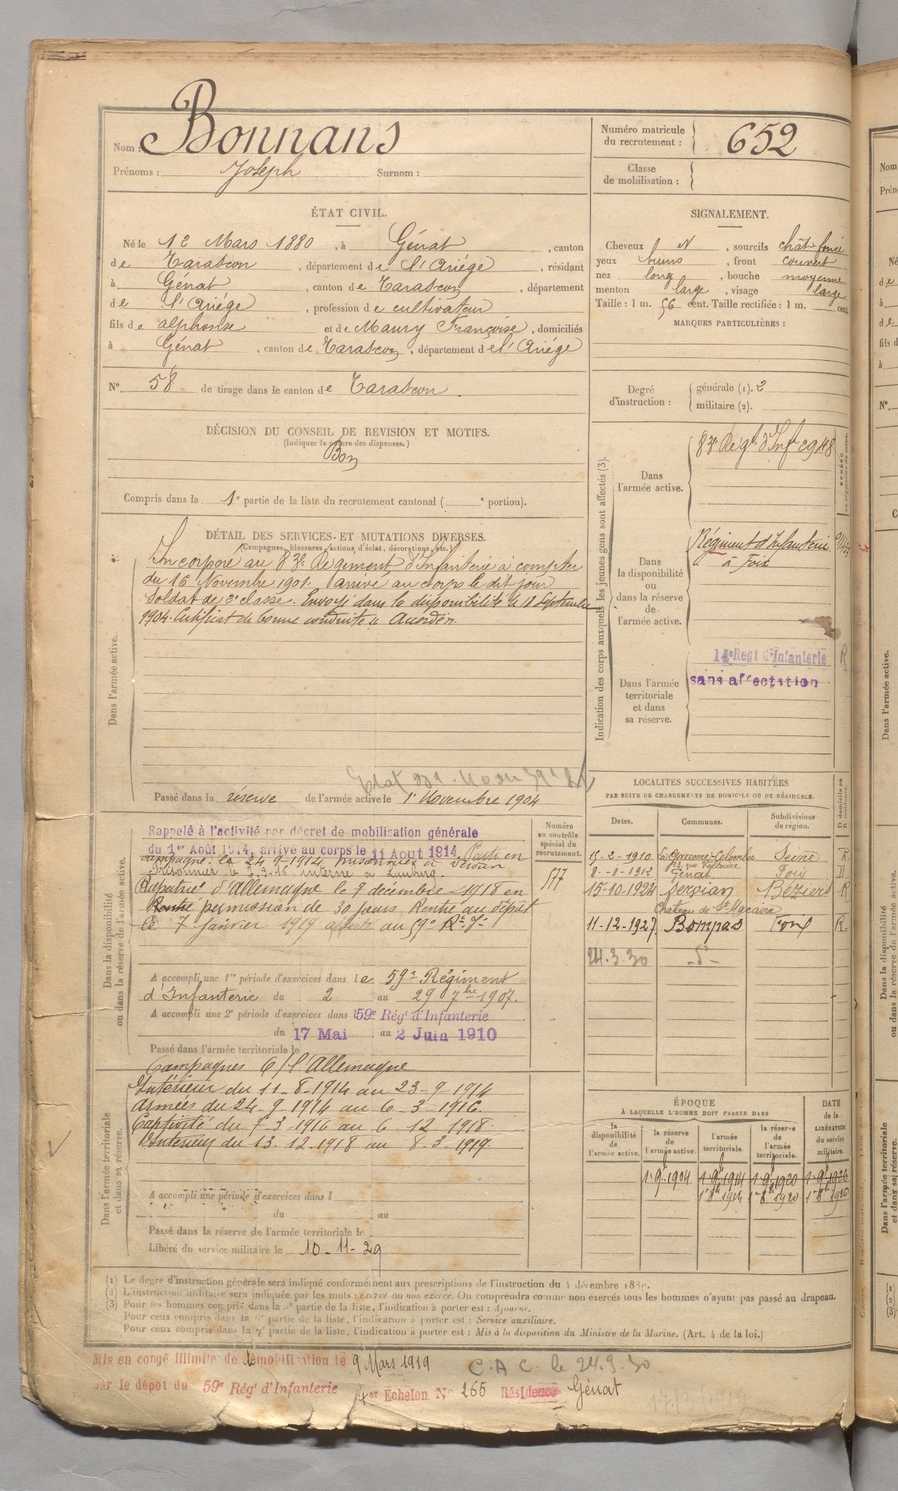 Nom : Bonnans
Prénoms : Joseph Surnom :
Numéro matricule du recrutement : 652
Classe de mobilisation :
ÉTAT CIVIL.
Né le 12 Mars 1880, à Génat, canton
de Tarascon, département de l'Ariége, résidant
à Génat, canton de Tarascon, département
de l'Ariége, profession de cultivateur
fils de alphonse et de Maury Françoise, domiciliés
à Génat, canton de Tarascon, département de l'Ariége
N° 58 de tirage dans le canton de Tarascon.
SIGNALEMENT.
Cheveux N, sourcils chât foncé
yeux bruns, front couvert
nez long, bouche moyenne
menton large, visage large
Taille : 1 m. 56 cent. Taille rectifiée : 1 m. cent.
MARQUES PARTICULIÈRES :
Degré d'instruction : générale (1). 2
militaire (2).
DÉCISION DU CONSEIL DE REVISION ET MOTIFS.
(Indiquer la nature des dispenses.)
Bon
Compris dans la 1e partie de la liste du recrutement cantonal ( e portion).
DÉTAIL DES SERVICES ET MUTATIONS DIVERSES.
(Campagnes, blessures, actions d'éclat, décorations, etc.)
Dans l'armée active.
Incorporé au 83e Régiment d'Infanterie à compter
du 16 Novembre 1901. arrivé au corps le dit jour
Soldat de 2e classe. Envoyé dans la disponibilité le 18 Septembre
1904. Certificat de bonne conduite "Accordé".
Passé dans la réserve de l'armée active le 1r Novembre 1904
Indication des corps auxquels les jeunes gens sont affectés (3).
Dans l'armée active.
83e Régt d'Inf
Dans la disponibilité ou dans la réserve de l'armée active.
Régiment d'Infanterie
à Foix
Dans l'armée territoriale et dans sa réserve.
14e Regt d'Infanterie
sans affectation
LOCALITÉS SUCCESSIVES HABITÉES
PAR SUITE DE CHANGEMENTS DE DOMICILE OU DE RÉSIDENCE.
Dates. Communes. Subdivisions de région.
15-2-1910 La Garenne-Colombes Seine R
8-8-1912 Génat Foix D
15-10-1924 Servian Béziers R
Chateau de St Macaire
11-12-1927 Bompas Foix R.
24.3.30
Dans la disponibilité ou dans la réserve de l'armée active.
Numéro au contrôle spécial du recrutement.
577
Rappelé à l'activité par décret de mobilisation générale
du 1er Août 1914, arrivé au corps le 11 Aout 1914. Parti en
campagne le 24-9-1914. prisonnier à Verdun
Rapatrié d'Allemagne le 7 décembre 1918 en
permission de 30 jours. Rentré au dépôt
le 7 Janvier 1919
A accompli une 1re période d'exercices dans le 59e Régiment
d'Infanterie du 2 au 29 7bre 1907.
A accompli une 2e période d'exercices dans le 59e Régt d'Infanterie
du 17 Mai au 2 Juin 1910
Passé dans l'armée territoriale le
Campagnes C/ l'Allemagne
Dans l'armée territoriale et dans sa réserve.
Intérieur du 11-8-1914 au 23-9-1914
Armées du 24-9-1914 au 6-3-1916.
Captivité du 7-3-1916 au 6-12-1918.
Intérieur du 13.12.1918 au 8-3-1919.
A accompli une période d'exercices dans l
du au
Passé dans la réserve de l'armée territoriale le
Libéré du service militaire le 10-11-29
ÉPOQUE
À LAQUELLE L'HOMME DOIT PASSER DANS
la disponibilité de l'armée active. la réserve de l'armée active. l'armée territoriale. la réserve de l'armée territoriale. DATE de la LIBÉRATION du service militaire.
1r 9bre 1904 1r 9bre 1914 1r 9bre 1920 1r 9bre 1926
(1) Le degré d'instruction générale sera indiqué conformément aux prescriptions de l'instruction du 4 décembre 1889.
(2) L'instruction militaire sera indiquée par les mots : exercé ou non exercé. On comprendra comme non exercés tous les hommes n'ayant pas passé au drapeau.
(3) Pour les hommes compris dans la 5e partie de la liste, l'indication à porter est : Ajourné.
Pour ceux compris dans la 6e partie de la liste, l'indication à porter est : Service auxiliaire.
Pour ceux compris dans la 7e partie de la liste, l'indication à porter est : Mis à la disposition du Ministre de la Marine. (Art. 4 de la loi.)
Mis en congé illimité de démobilisation le 9 Mars 1919
par le dépôt du 59e Régt d'Infanterie 1er Echelon N° 265 Résidence Génat
C.A.C. le 24.9.30